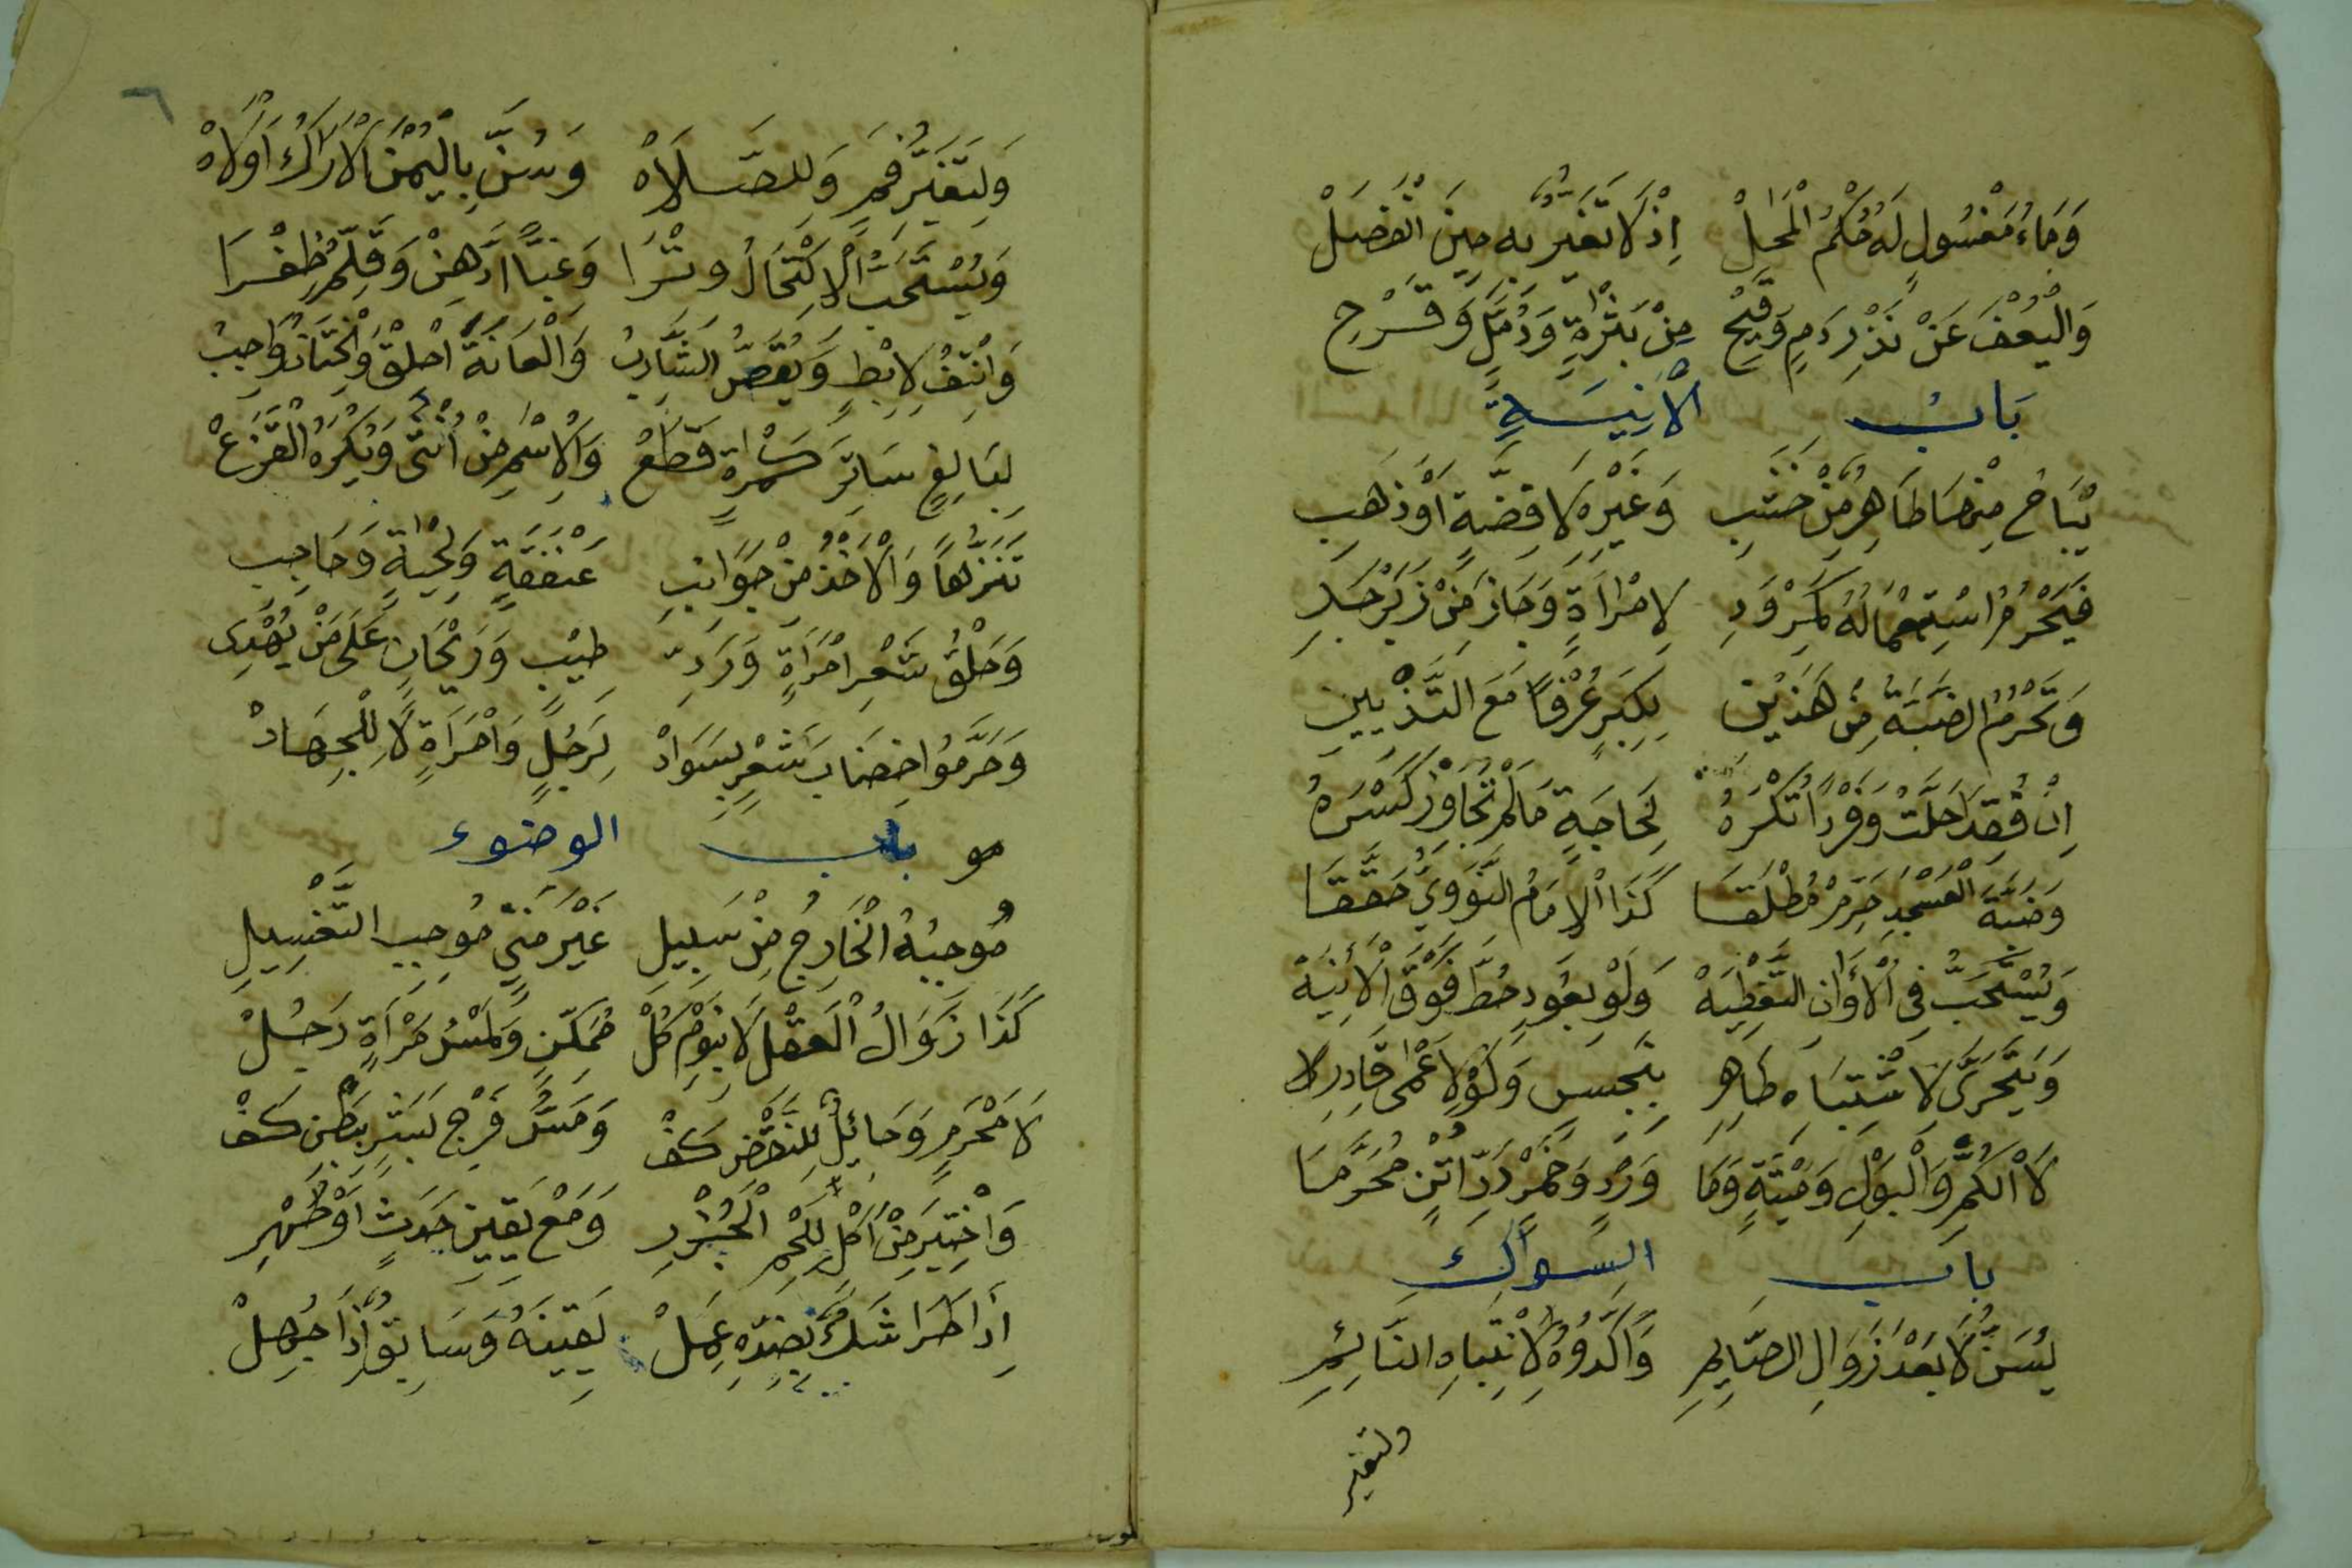 وَمَاءُ مَغْسُولٍ لَهُ حُكْمُ الْمَحَلْ إِذْ لَا تَغَيُّرَ بِهِ حِينَ انْفَصَلْ
وَالْيُعْفَ عَنْ نَذْرِ دَمٍ وَقَيْحٍ مِنْ بَثْرَةٍ وَدُمَّلٍ وَقَرْحِ
بَابُ الآنِيَةِ
يُبَاحُ مِنْهَا طَاهِرٌ مِنْ خَشَبِ وَغَيْرِهِ لَا فِضَّةٍ أَوْ ذَهَبِ
فَيَحْرُمُ اسْتِعْمَالُهُ كَمِرْوَدِ لِامْرَأَةٍ وَجَازَ مِنْ زَبَرْجَدِ
وَتَحْرُمُ الضَّبَّةُ مِنْ هَذَيْنِ بِكِبَرٍ عُرْفًا مَعَ التَّزْيِينِ
اِنْ فُقِدَا حَلَّتْ وَفَرْدًا تُكْرَهُ لِحَاجَةٍ مَا لَمْ تُجَاوِزْ كَسْرَهُ
وَضَبَّةَ الْعَسْجَدِ حَرِّمْ مُطْلَقَا كَذَا الْاِمَامُ النَّوَوِيُّ حَقَّقَا
وَيُسْتَحَبُّ فِي الْأَوَانِ التَّغْطِيَهْ وَلَوْ بِعُودٍ حُطَّ فَوْقَ الْآنِيَهْ
وَيَتَحَرَّى لِاشْتِبَاهِ طَاهِرِ بِنَجِسٍ وَلَوْ لِاَعْمَى قَادِرِ لا
لَا الْكُمِّ وَالْبَوْلِ وَمَيْتَةٍ وَمَا وَرْدٍ وَخَمْرٍ دَرِّ اُتْنٍ مُحَرَّمَا
باب السِّوَاكِ
يُسَنُّ لَا بَعْدَ زَوَالِ الصَّايِمِ وَأَكَّدُوهُ لِانْتِبَاهِ النَّائِمِ
ولتغير
٦
وَلِتَغَيُّرِ فَمٍ وَلِلصَّلَاهْ وَسُنَّ بِالْيُمْنَى الْاَرَاكُ اَوْلَاهْ
وَيُسْتَحَبُّ الْاِكْتِحَالُ وِتْرَا وَغِبًّا ادَّهِنْ وَقَلِّمْ ظُفْرَا
وَانْتِفْ لِاِبْطٍ وَيُقَصُّ الشَّارِبُ وَالْعَانَةُ احْلِقْ وَالْخِتَانُ وَاجِبُ
لِبَالِغٍ سَاتِرَ كَمْرَةٍ قَطَعْ وَالْاِسْمِ مِنْ اُنْثَى وَيُكْرَهُ الْقَزَعْ
تَنَزُّهًا وَالْاَخْذُ مِنْ جَوَانِبِ عَنْفَقَةٍ وَلِحْيَةٍ وَحَاجِبِ
وَحَلْقُ شَعْرِ امْرَأَةٍ وَرَدِّ طِيْبٍ وَرَيْحَانٍ عَلَى مَنْ يُهْدِى
وَحَرَّمُوا خِضَابَ شَعْرٍ بِسَوَادْ لِرَجُلٍ وَامْرَاَةٍ لَا لِلْجِهَادْ
باب الوضوء
مُوجِبُهُ الْخَارِجُ مِنْ سَبِيلِ غَيْرَ مَنِيٍّ مُوجِبِ التَّغْسِيلِ
كَذَا زَوَالُ الْعَقْلِ لَا بِنَوْمِ كُلْ مُمَكِّنٍ وَلَمْسُ مَرْأَةٍ رَجُلْ
لَا مَحْرَمٍ وَحَائِلٌ لِلنَّقْضِ كَفّْ وَمَسُّ فَرْجِ بَشَرٍ بِبَطْنِ كَفْ
وَاخْتِيرَ مِنْ اَكْلٍ لِلَحْمِ الْجُزُرِ وَمَعْ يَقِينِ حَدَثٍ اَوْ طُهْرِ
إِذَا طَرَا شَكٌّ بِضِدِّهِ عَمِلْ يَقِينَهُ وَسَابِقٌ إِذَا جُهِلْ